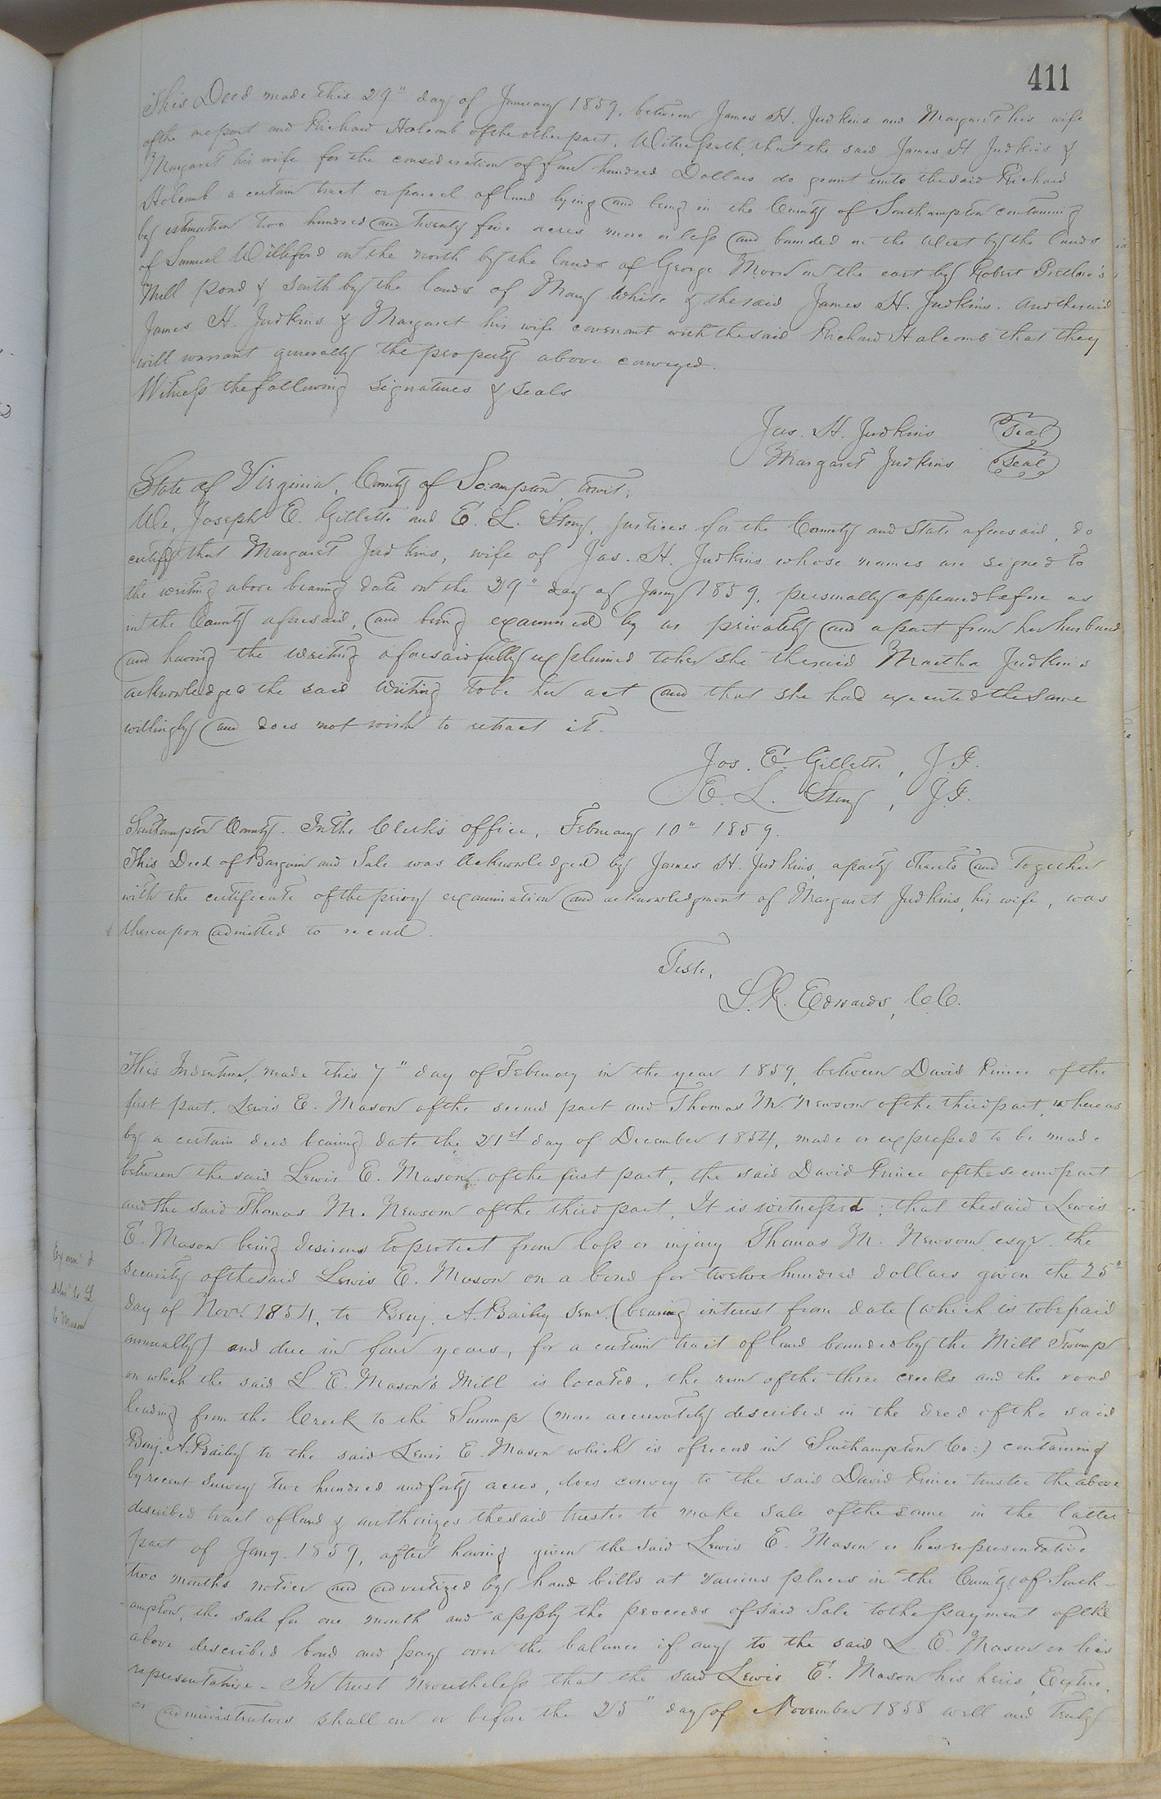 411
This Deed made this 29" day of January 1859, between James H. Judkins and Margaret his wife
of the one part and Richard Holcomb of the other part, Witnesseth, that the said James H Judkins &
Margaret his wife for the consideration of four hundred Dollars do grant unto the said Richard
Holcomb a certain tract or parcel of land lying and being in the County of Southampton containing
by estimation two hundred and twenty five acres more or less and bounded on the West by the lands
of Samuel Williford on the north by the lands of George Moore on the east by Robert
Mill pond & South by the lands of Mary White & the said James H. Judkins. And the said
James H. Judkins & Margaret his wife covenant with the said Richard Holcomb that they
will warrant generally the property above conveyed.
Witness the following signatures & seals
Jas. H. Judkins (Seal)
Margaret Judkins (Seal)
State of Virginia, County of So.ampton, towit;
We, Joseph E. Gillette and E. L. Story, Justices for the County and State aforesaid, do
certify that Margaret Judkins, wife of Jas. H. Judkins whose names are signed to
the writing above bearing date on the 29" day of Jany 1859, personally appeared before us
in the County aforesaid, and being examined by us privately and apart from her husband
and having the writing aforesaid fully explained to her she the said Martha Judkins
acknowledged the said writing to be her act and that she had executed the same
willingly and does not wish to retract it.
Jos. E. Gillette, J.P.
E. L. Story, J.P.
Southampton County. In the Clerk's office, February 10" 1859.
This Deed of Bargain and Sale was acknowledged by James H. Judkins, a party thereto and together
with the certificate of the privy examination and acknowledgment of Margaret Judkins, his wife, was
thereupon admitted to record.
Teste,
L. R. Edwards, C.C.
This Indenture, made this 7" day of February in the year 1859, between David Prince of the
first part, Lewis E. Mason of the second part and Thomas M Newsom of the third part, whereas
by a certain deed bearing date the 21st day of December 1854, made or expressed to be made
between the said Lewis E. Mason, of the first part, the said David Prince of the second part
and the said Thomas M. Newsom of the third part, It is witnessed; that the said Lewis
E. Mason being desirous to protect from loss or injury Thomas M. Newsom esqr. the
security of the said Lewis E. Mason on a bond for twelve hundred dollars given the 25"
day of Novr 1854, to Benj. A. Bailey Senr. (bearing interest from date (which is to be paid
annually) and due in four years, for a certain tract of land bounded by the Mill Swamp
on which the said L E. Mason's Mill is located, the run of the three creeks and the road
leading from the Creek to the Swamp (more accurately described in the deed of the said
Benj. A. Bailey to the said Lewis E. Mason which is of record in Southampton Co:) containing
by recent survey two hundred and forty acres, does convey to the said David Prince trustee the above
described tract of land & authorizes the said trustee to make sale of the same in the latter
part of Jany. 1859, after having given the said Lewis E. Mason or his representative
two months notice and advertized by hand bills at various places in the County of South-
-ampton, the sale for one month and apply the proceeds of said Sale to the payment of the
above described bond and pay over the balance if any to the said L. E. Mason or his
representative - In trust nevertheless that the said Lewis E. Mason his heirs, Exctrs.
or administrators shall on or before the 25" day of November 1858 well and truly
Exam'd
& E Mason